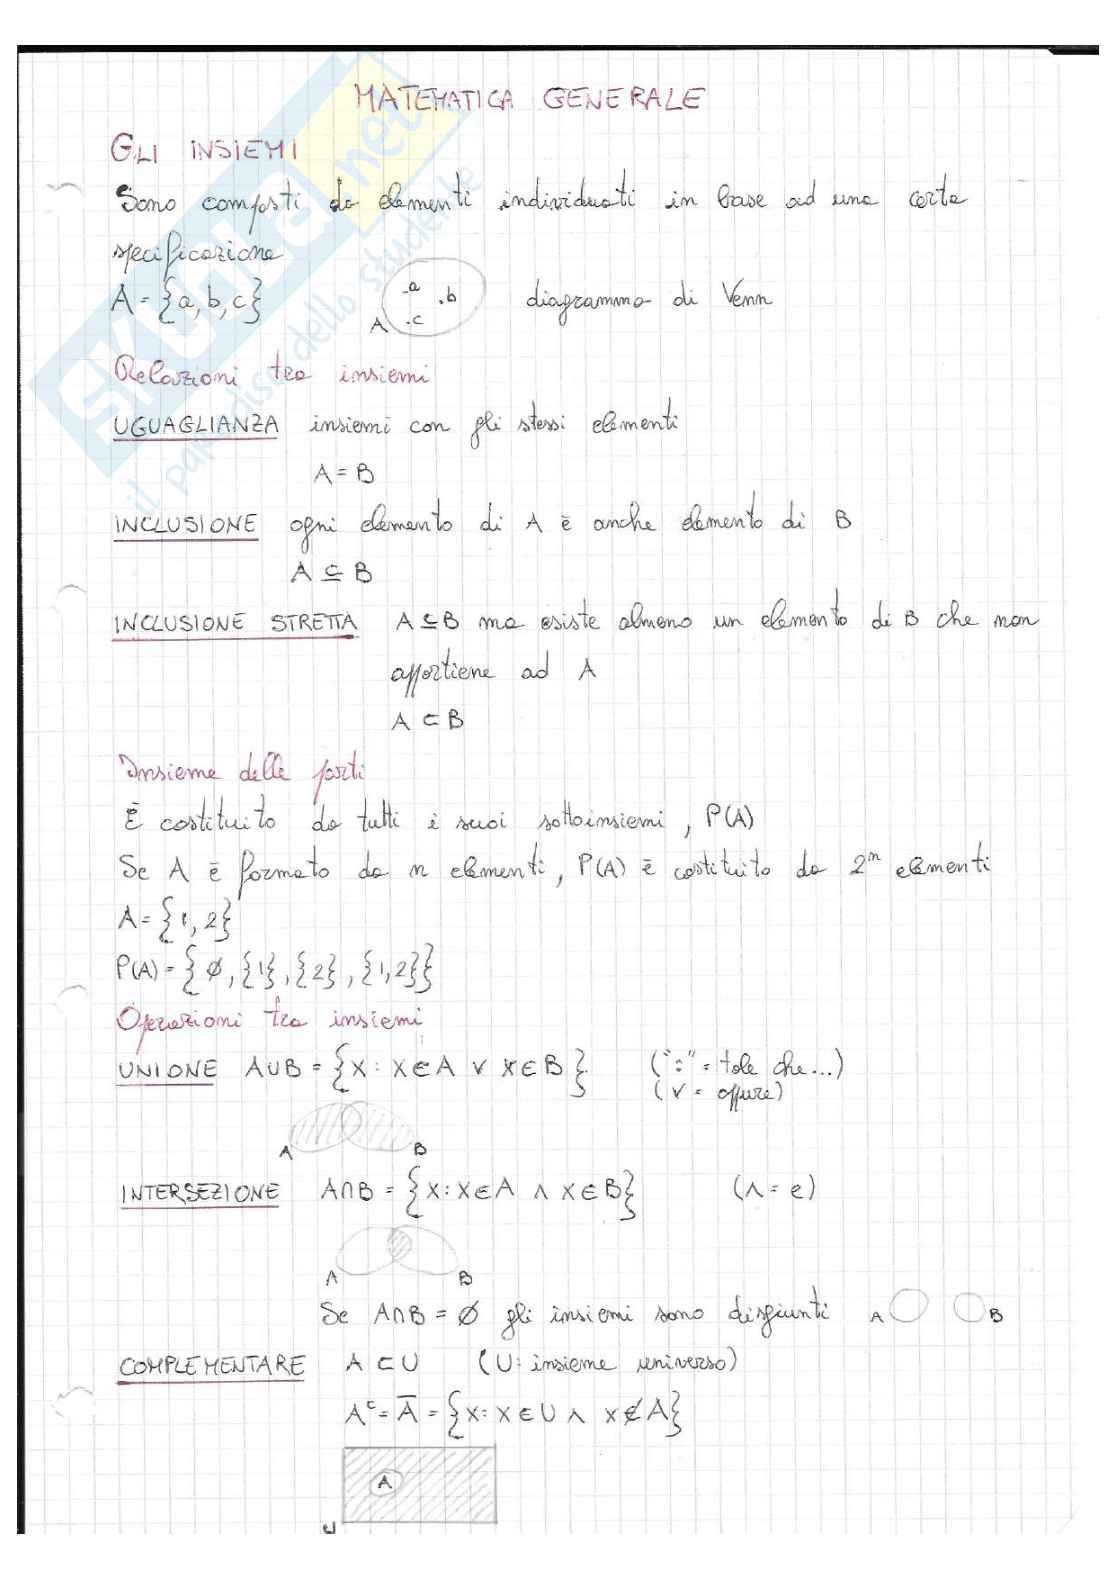 MATEMATICA GENERALE
GLI INSIEMI
Sono composti da elementi individuati in base ad una certa
specificazione
A = {a, b, c} A .a .b .c diagramma di Venn
Relazioni tra insiemi
UGUAGLIANZA insiemi con gli stessi elementi
A = B
INCLUSIONE ogni elemento di A è anche elemento di B
A ⊆ B
INCLUSIONE STRETTA A ⊆ B ma esiste almeno un elemento di B che non
appartiene ad A
A ⊂ B
Insieme delle parti
È costituito da tutti i suoi sottoinsiemi, P(A)
Se A è formato da n elementi, P(A) è costituito da 2ⁿ elementi
A = {1, 2}
P(A) = {∅, {1}, {2}, {1,2}}
Operazioni tra insiemi
UNIONE A∪B = {x : x∈A ∨ x∈B} (":" = tale che...)
(∨ = oppure)
A B
INTERSEZIONE A∩B = {x : x∈A ∧ x∈B} (∧ = e)
A B
Se A∩B = ∅ gli insiemi sono disgiunti A B
COMPLEMENTARE A ⊂ U (U: insieme universo)
Aᶜ = A̅ = {x : x∈U ∧ x∉A}
A
U
SKUOLA.net
il paradiso dello studente